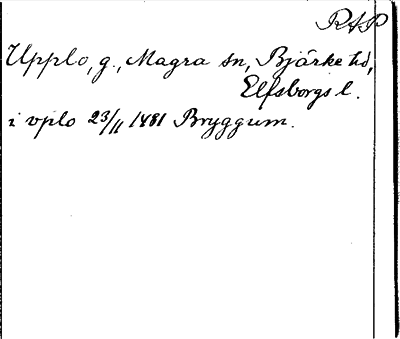 RAP
Upplo, g., Magra sn, Bjärke hd,
Elfsborgs l.
i vplo 23/11 1481 Bryggum.